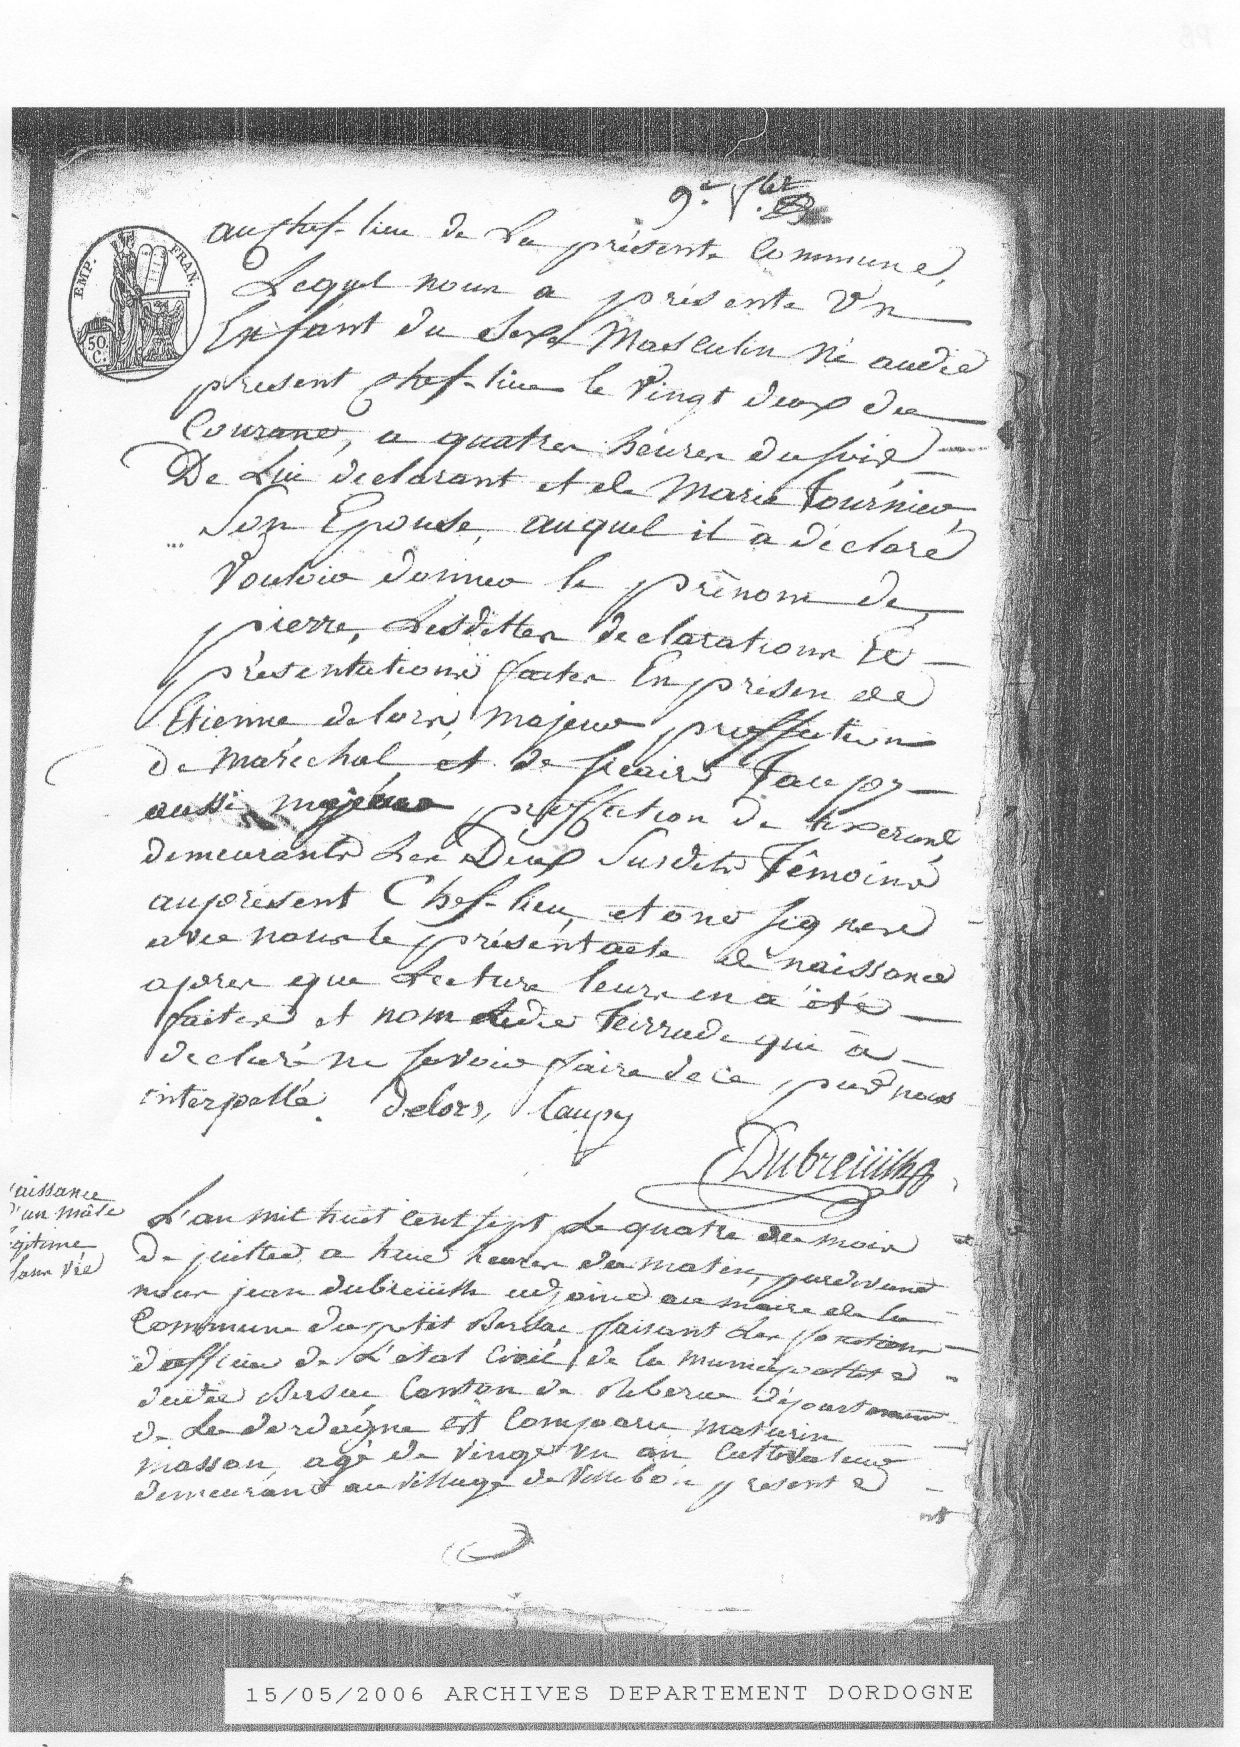 EMP. FRAN.
50
C.
au chef-lieu de La présente Commune,
Lequel nous a présenté Un
Enfant du Sexe Masculin Né audit
présent chef-lieu le Vingt deux du
Courant, a quatre heures du soir
De Lui déclarant et de Marie Tournier
Son Epouse, auquel il a déclaré
Vouloir donner le prénom de
pierre, Lesdittes déclarations Et
présentations faites En présen de
Etienne delors, majeur, proffession
de maréchal, et de sicaire Taupy
aussi majeur, proffession de tixerant
demeurants Les Deux Susdits Témoins
au présent Chef-lieu, et ont signés
avec nous le présent acte de naissance
apres que Lecture leurs en a été
faites et non Ledit qui a
declaré ne savoir faire de ce, par nous
interpellé. delors, taupy
Dubreuilh
naissance
d'un mâle
légitime
L'an mil huit cent sept Le quatre du mois
de juillet, a huit heures du matin, pardevant
nous jean dubreuilh adjoint au maire de la
Commune du petit Bersac, faisant Les fonctions
d'officier de L'état Civil de la municipalité
dudit Bersac, Canton de Riberac département
de La dordogne Est Comparu maturin
masson, agé de vingt un an, Cultivateur
demeurant au village de présent
15/05/2006 ARCHIVES DEPARTEMENT DORDOGNE